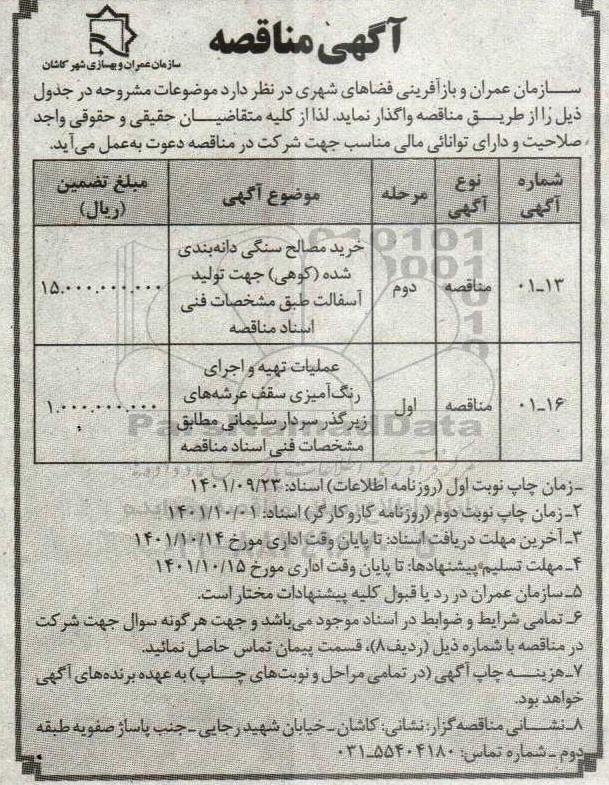 آگهی مناقصه
سازمان عمران و بهسازی شهر کاشان
سازمان عمران و بازآفرینی فضاهای شهری در نظر دارد موضوعات مشروحه در جدول
ذیل را از طریق مناقصه واگذار نماید. لذا از کلیه متقاضیان حقیقی و حقوقی واجد
صلاحیت و دارای توانائی مالی مناسب جهت شرکت در مناقصه دعوت به‌عمل می‌آید.
شماره آگهی | نوع آگهی | مرحله | موضوع آگهی | مبلغ تضمین (ریال)
۰۱-۱۳ | مناقصه | دوم | خرید مصالح سنگی دانه‌بندی شده (کوهی) جهت تولید آسفالت طبق مشخصات فنی اسناد مناقصه | ۱۵.۰۰۰.۰۰۰.۰۰۰
۰۱-۱۶ | مناقصه | اول | عملیات تهیه و اجرای رنگ‌آمیزی سقف عرشه‌های زیرگذر سردار سلیمانی مطابق مشخصات فنی اسناد مناقصه | ۱.۰۰۰.۰۰۰.۰۰۰
ParsNamadData
ـ زمان چاپ نوبت اول (روزنامه اطلاعات) اسناد: ۱۴۰۱/۰۹/۲۳
۲ـ زمان چاپ نوبت دوم (روزنامه کاروکارگر) اسناد: ۱۴۰۱/۱۰/۰۱
۳ـ آخرین مهلت دریافت اسناد: تا پایان وقت اداری مورخ ۱۴۰۱/۱۰/۱۴
۴ـ مهلت تسلیم پیشنهادها: تا پایان وقت اداری مورخ ۱۴۰۱/۱۰/۱۵
۵ـ سازمان عمران در رد یا قبول کلیه پیشنهادات مختار است.
۶ـ تمامی شرایط و ضوابط در اسناد موجود می‌باشد و جهت هرگونه سوال جهت شرکت
در مناقصه با شماره ذیل (ردیف۸)، قسمت پیمان تماس حاصل نمائید.
۷ـ هزینه چاپ آگهی (در تمامی مراحل و نوبت‌های چاپ) به عهده برنده‌های آگهی
خواهد بود.
۸ـ نشانی مناقصه‌گزار: نشانی: کاشان ـ خیابان شهید رجایی ـ جنب پاساژ صفویه طبقه
دوم ـ شماره تماس: ۵۵۴۰۴۱۸۰-۰۳۱